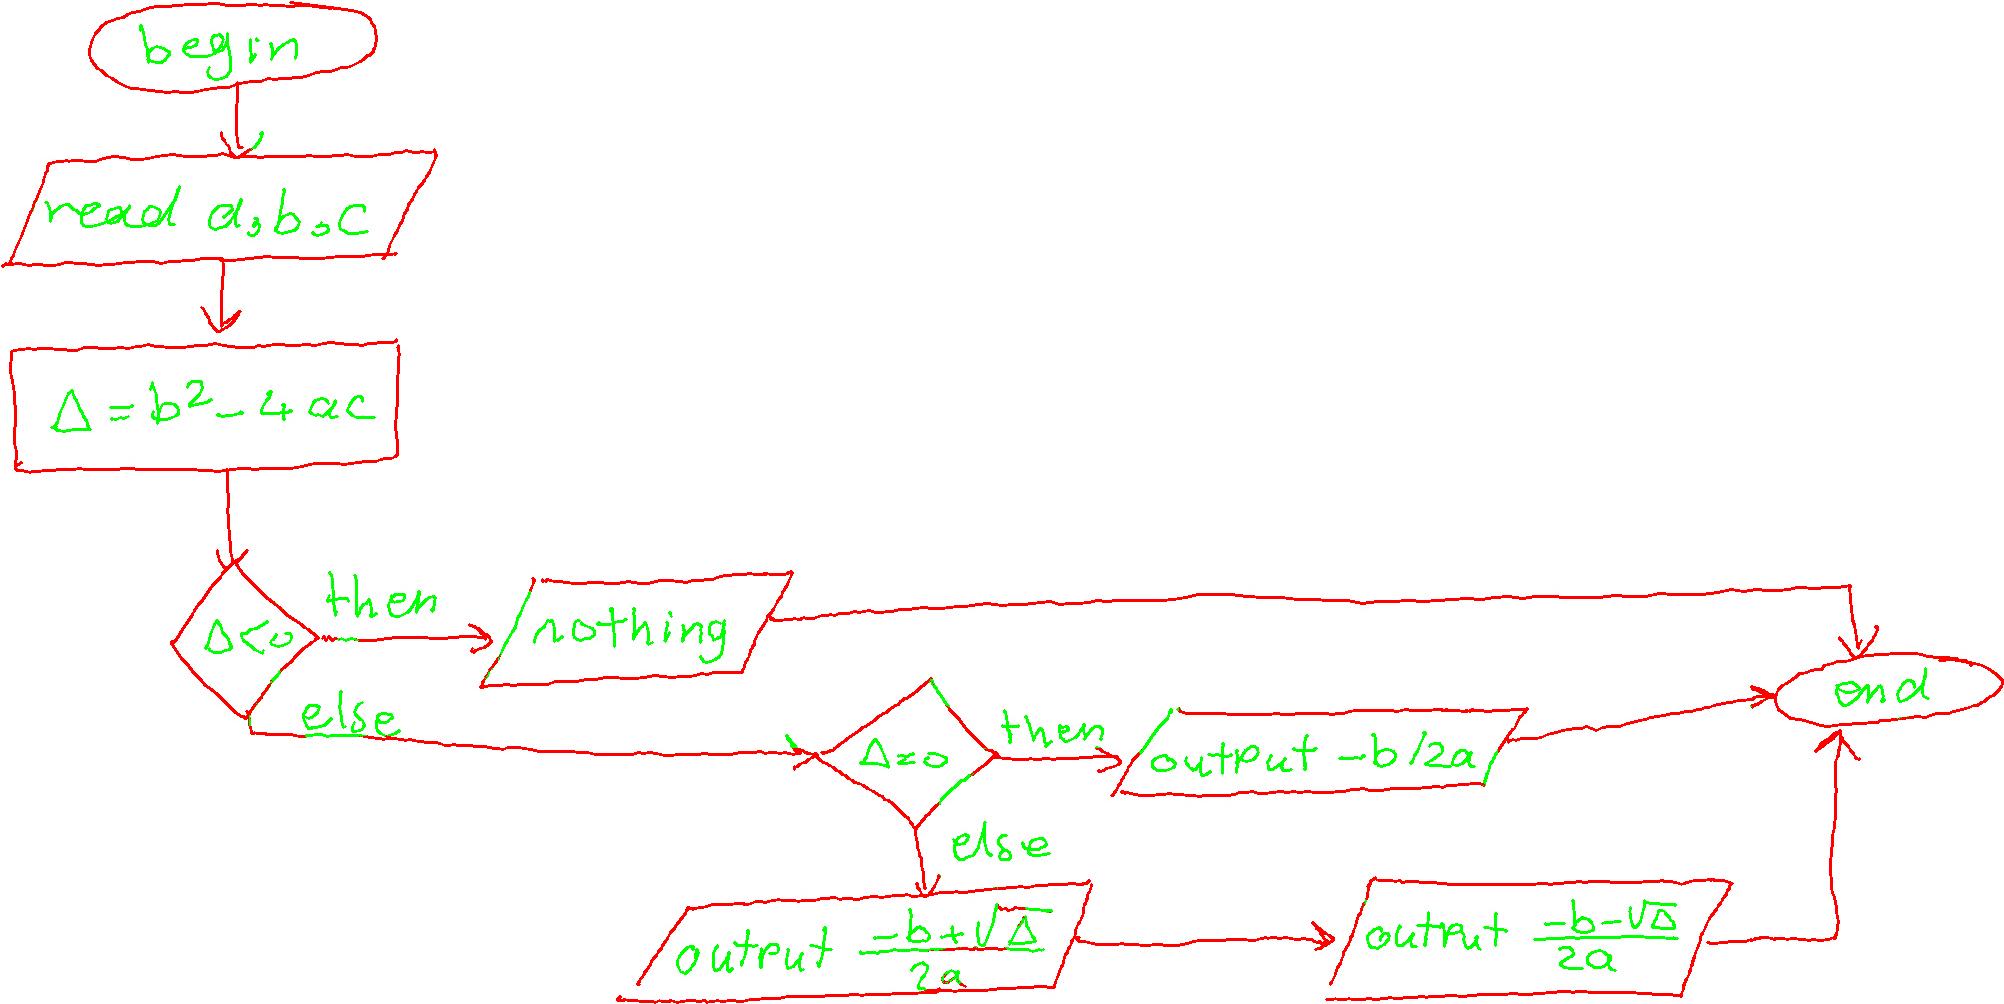 begin
read a, b, c
Δ = b² - 4ac
Δ<0
then
nothing
else
Δ=0
then
output -b/2a
end
else
output (-b+√Δ)/2a
output (-b-√Δ)/2a